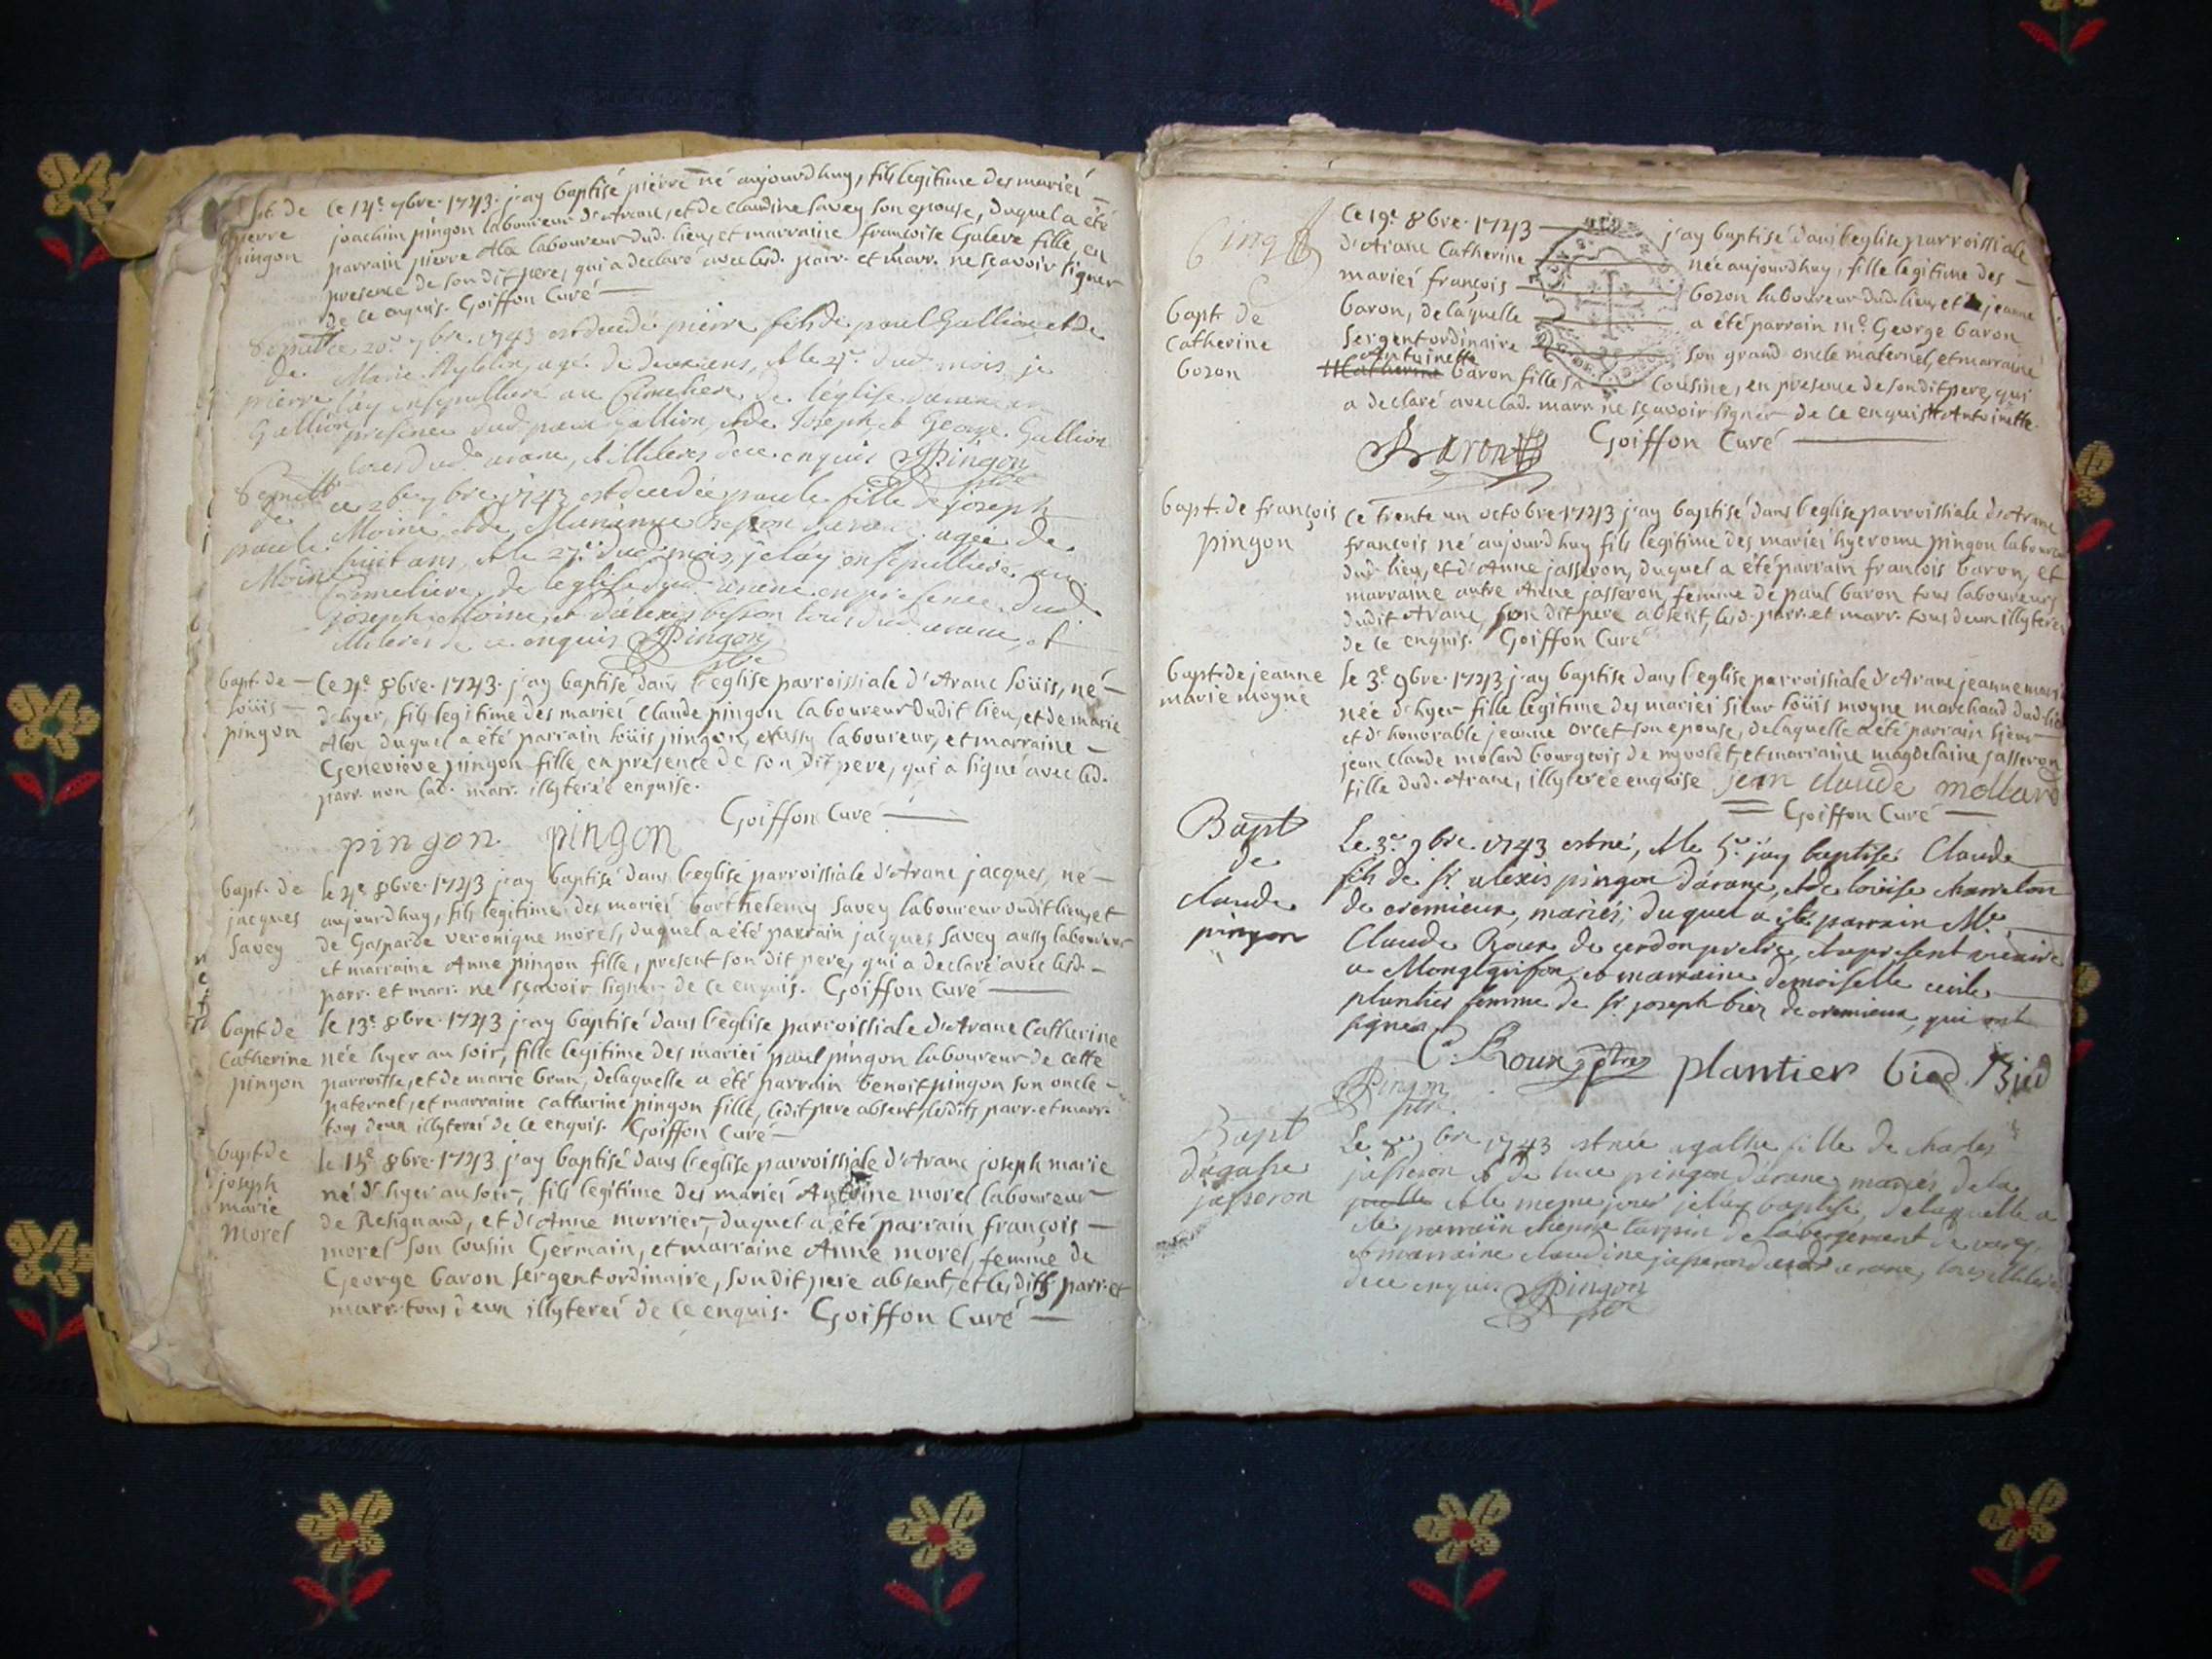 bpt. de
pierre
pingon
Ce 14e. 7bre. 1743. j'ay baptisé pierre né aujourdhuy, fils legitime des mariés
joachim pingon laboureur d'Aranc, et de claudine Savey son epouse, duquel a été
parrain pierre Alex laboureur dud. lieu, et marraine françoise Galere fille, en
presence de son dit pere, qui a declaré avec lesd. parr. et marr. ne sçavoir signer
de ce enquis. Goiffon Curé
de
pierre
Gallion
ce 20e. 7bre. 1743 est decedé pierre fils de paul Gallion et de
Marie agé de deux ans, et le 21e. dud. mois je
l'ay ensepulturé au Cimetiere de l'église d'aranc en
presence dud. paul Gallion, et de Joseph et George Gallion
tous dud. aranc, illiteres de ce enquis Pingon
ptre
de
paule
Moine
ce 26e 7bre 1743 est decedée paule fille de joseph
Moine et de Marianne besson d'aranc agée de
huit ans, et le 27e. dud. mois, je l'ay ensepulturé au
Cimetiere de l'eglise dud. aranc en presence dud.
joseph Moine, et d'alexis besson tous dud. aranc, et
illiteres de ce enquis Pingon
ptre
bapt. de
loüis
pingon
Ce 4e. 8bre. 1743. j'ay baptisé dans l'eglise parroissiale d'Aranc loüis, né
d'hyer, fils legitime des mariés Claude pingon laboureur dudit lieu, et de marie
Alex duquel a été parrain loüis pingon, aussy laboureur, et marraine
Genevieve pingon fille, en presence de son dit pere, qui a signé avec led.
parr. non lad. marr. illyterée enquise.
Goiffon Curé
pingon pingon
bapt. de
jacques
Savey
le 4e 8bre. 1743 j'ay baptisé dans l'eglise parroissiale d'Aranc jacques, né
aujourdhuy, fils legitime des mariés barthelemy Savey laboureur dudit lieu, et
de Gasparde veronique morel, duquel a été parrain jacques Savey aussy laboureur
et marraine Anne pingon fille, present son dit pere, qui a declaré avec lesd.
parr. et marr. ne sçavoir signer de ce enquis. Goiffon Curé
bapt de
Catherine
pingon
le 13e. 8bre. 1743 j'ay baptisé dans l'eglise parroissiale d'Aranc Catherine
née hyer au soir, fille legitime des mariés paul pingon laboureur de cette
parroisse, et de marie brun, delaquelle a été parrain benoit pingon son oncle
paternel, et marraine catherine pingon fille, ledit pere absent, lesdits parr. et marr.
tous deux illyterés de ce enquis. Goiffon Curé
bapt de
joseph
marie
Morel
le 15e 8bre. 1743 j'ay baptisé dans l'eglise parroissiale d'Aranc joseph marie
né d'hyer au soir, fils legitime des mariés Antoine morel laboureur
de Resignaud, et d'Anne morrier, duquel a été parrain françois
morel son cousin Germain, et marraine Anne morel, femme de
George baron sergent ordinaire, son dit pere absent, et lesdits parr. et
marr. tous deux illyterés de ce enquis. Goiffon Curé
Cinq
bapt. de
Catherine
bozon
Ce 19e. 8bre. 1743 j'ay baptisé dans l'eglise parroissiale
d'Aranc Catherine née aujourdhuy, fille legitime des
mariés françois bozon laboureur dud. lieu, et jeanne
baron, delaquelle a été parrain me. George baron
sergent ordinaire son grand oncle maternel, et marraine
antoinette
Catherine baron fille sa cousine, en presence de son dit pere, qui
a declaré avec lad. marr. ne sçavoir signer de ce enquis Antoinette.
Baron Goiffon Curé
bapt. de françois
pingon
Ce trente un octobre 1743 j'ay baptisé dans l'eglise parroissiale d'Aranc
françois né aujourdhuy fils legitime des mariés hyerome pingon laboureur
dud. lieu, et d'Anne jasseron, duquel a été parrain francois baron, et
marraine autre Anne jasseron, femme de paul baron tous laboureurs
dudit Aranc, son dit pere absent, lesd. parr. et marr. tous deux illyterés
de ce enquis. Goiffon Curé
bapt. de jeanne
marie moyne
le 3e. 9bre. 1743 j'ay baptisé dans l'eglise parroissiale d'Aranc jeanne marie
née d'hyer fille legitime des mariés sieur loüis moyne marchand dud. lieu
et d'honorable jeanne orcet son epouse, delaquelle a été parrain sieur
jean claude molard bourgeois de myvolet, et marraine magdelaine jasseron
fille dud. Aranc, illyterée enquise jean claude mollard
Goiffon Curé
Bapt
de
claude
pingon
Le 3e. 9bre 1743 est né, et le 5e. j'ay baptisé Claude
fils de sr. alexis pingon d'aranc, et de loüise
de cremieux, mariés, duquel a été parrain Me.
Claude Roux de cerdon pretre, et a present vicaire
a Montgrifon, et marraine demoiselle cecile
plantier femme de sr. joseph bied de cremieux, qui ont
signés
C. Roux ptre plantier bied Bied
Pingon
ptre.
Bapt
d'agathe
jasseron
Le 9bre 1743 est née agathe fille de charles
jasseron et de luce pingon d'aranc, mariés, de la
et le meme jour je l'ay baptisé, delaquelle a
été parrain etienne turpin de l'abergement de varey,
et marraine claudine jasseron dud. aranc, tous illiteres
de ce enquis Pingon
ptre